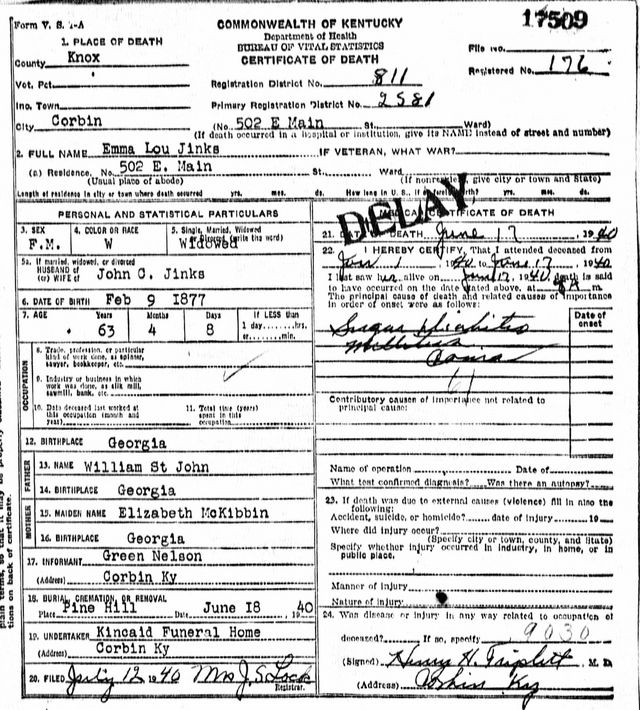 Form V. S. 1-A
COMMONWEALTH OF KENTUCKY
17509
Department of Health
BUREAU OF VITAL STATISTICS
CERTIFICATE OF DEATH
1. PLACE OF DEATH
County Knox
File No.
Registered No. 176
Vot. Pct.
Registration District No. 811
Ino. Town
Primary Registration District No. 2581
City Corbin
(No. 502 E Main St. Ward)
(If death occurred in a hospital or institution, give its NAME instead of street and number)
2. FULL NAME Emma Lou Jinks IF VETERAN, WHAT WAR?
(a) Residence. No. 502 E. Main St. Ward
(Usual place of abode) (If nonresident, give city or town and State)
Length of residence in city or town where death occurred yrs. mos. ds. How long in U. S., if of foreign birth? yrs. mos. ds.
DELAY
PERSONAL AND STATISTICAL PARTICULARS
3. SEX F.M.
4. COLOR OR RACE W
5. Single, Married, Widowed or Divorced (write the word) Widowed
5a. If married, widowed, or divorced
HUSBAND of
(or) WIFE of John C. Jinks
6. DATE OF BIRTH Feb 9 1877
7. AGE Years Months Days If LESS than
63 4 8 1 day, hrs.
or min.
OCCUPATION
8. Trade, profession, or particular
kind of work done, as spinner,
sawyer, bookkeeper, etc.
9. Industry or business in which
work was done, as silk mill,
sawmill, bank, etc.
10. Date deceased last worked at
this occupation (month and
year)
11. Total time (years)
spent in this
occupation
12. BIRTHPLACE Georgia
FATHER
13. NAME William St John
14. BIRTHPLACE Georgia
MOTHER
15. MAIDEN NAME Elizabeth McKibbin
16. BIRTHPLACE Georgia
17. INFORMANT Green Nelson
(Address) Corbin Ky
18. BURIAL, CREMATION, OR REMOVAL
Place Pine Hill Date June 18 1940
19. UNDERTAKER Kincaid Funeral Home
(Address) Corbin Ky
20. FILED July 12 1940 Mrs J. S. Lock
Registrar.
MEDICAL CERTIFICATE OF DEATH
21. DATE OF DEATH June 17 1940
22. I HEREBY CERTIFY, That I attended deceased from
1 1940 to June 17 1940
I last saw her alive on June 17 1940, death is said
to have occurred on the date stated above, at m.
The principal cause of death and related causes of importance
in order of onset were as follows:
Date of
onset
Sugar Diabites
Mellitus
Coma
61
Contributory causes of importance not related to
principal cause:
Name of operation Date of
What test confirmed diagnosis? Was there an autopsy?
23. If death was due to external causes (violence) fill in also the
following:
Accident, suicide, or homicide? date of injury 19
Where did injury occur?
(Specify city or town, county, and State)
Specify whether injury occurred in industry, in home, or in
public place.
Manner of injury
Nature of injury
24. Was disease or injury in any way related to occupation of
deceased? If so, specify 9030
(Signed) Henry H. Triplett M. D.
(Address) Corbin Ky
tions on back of certificate.